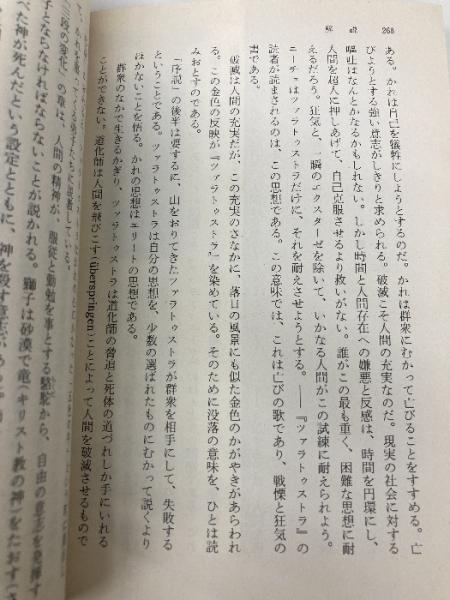 268
解説
ある。かれは自己を犠牲にしようとするのだ。かれは群衆にむかって亡びることをすすめる。亡
びようとする強い意志がしきりと求められる。破滅こそ人間の充実なのだ。現実の社会に対する
嘔吐はなんとかなるかもしれない。しかし時間と人間存在への嫌悪と反感は、時間を円環にし、
人間を超人に押しあげて、自己克服させるより救いがない。誰がこの最も重く、困難な思想に耐
えるだろう。狂気と、一瞬のエクスターゼを除いて、いかなる人間がこの試練に耐えられよう。
ニーチェはツァラトゥストラだけに、それを耐えさせようとする。――『ツァラトゥストラ』の
読者が読まされるのは、この思想である。この意味では、これは亡びの歌であり、戦慄と狂気の
書である。
破滅は人間の充実だが、この充実のさなかに、落日の風景にも似た金色のかがやきがあらわれ
る。この金色の反映が『ツァラトゥストラ』を染めている。そのために没落の意味を、ひとは読
みおとすのである。
「序説」の後半は要するに、山をおりてきたツァラトゥストラが群衆を相手にして、失敗する
ということである。ツァラトゥストラは自分の思想を、少数の選ばれたものにむかって説くより
ほかないことを悟る。かれの思想はエリートの思想である。
群衆のなかで生きるかぎり、ツァラトゥストラは道化師の脅迫と死体の道づれしか手にいれる
ことができない。道化師は人間を飛びこす（überspringen）ことによって人間を破滅させるもので
三段の変化」の章は、人間の精神が、服従と勤勉を事とする駱駝から、自由の意志を発揮す
子とならなければならないことが説かれる。獅子は砂漠で竜（キリスト教の神）をたおす
べた神が死んだという設定とともに、神を殺す意志が